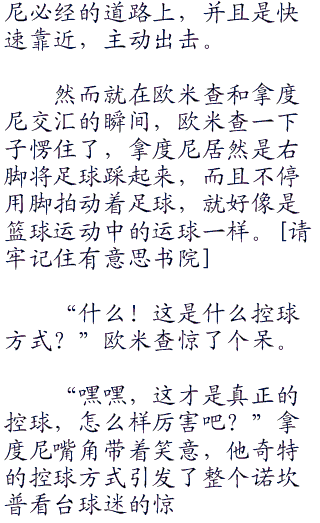 尼必经的道路上，并且是快
速靠近，主动出击。
然而就在欧米查和拿度
尼交汇的瞬间，欧米查一下
子愣住了，拿度尼居然是右
脚将足球踩起来，而且不停
用脚拍动着足球，就好像是
篮球运动中的运球一样。[请
牢记住有意思书院]
“什么！这是什么控球
方式？”欧米查惊了个呆。
“嘿嘿，这才是真正的
控球，怎么样厉害吧？”拿
度尼嘴角带着笑意，他奇特
的控球方式引发了整个诺坎
普看台球迷的惊